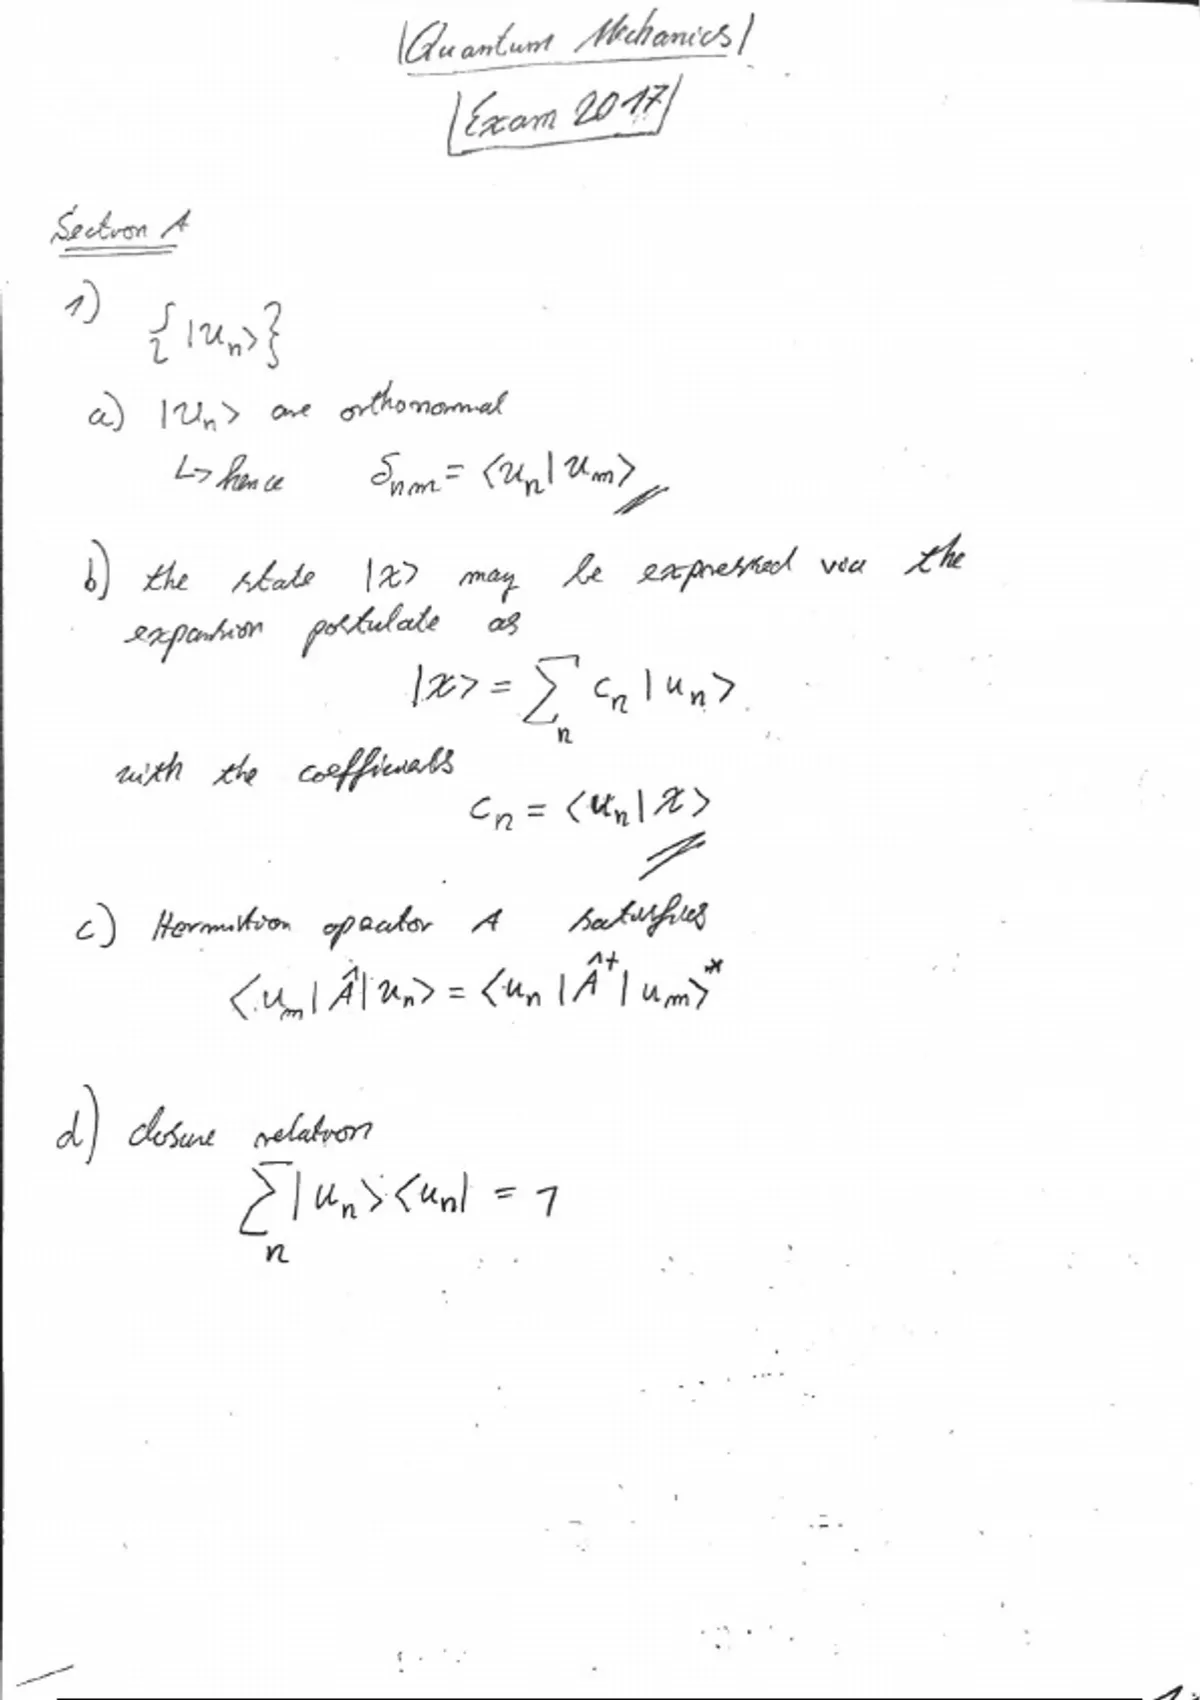 Quantum Mechanics
Exam 2017
Section A
1) {|u_n>}
a) |u_n> are orthonormal
↳ hence δ_nm = <u_n|u_m>
b) the state |x> may be expressed via the
expansion postulate as
|x> = Σ_n c_n |u_n>
with the coefficients
c_n = <u_n|x>
c) Hermition operator A satisfies
<u_m|Â|u_n> = <u_n|Â†|u_m>*
d) closure relation
Σ_n |u_n><u_n| = 1